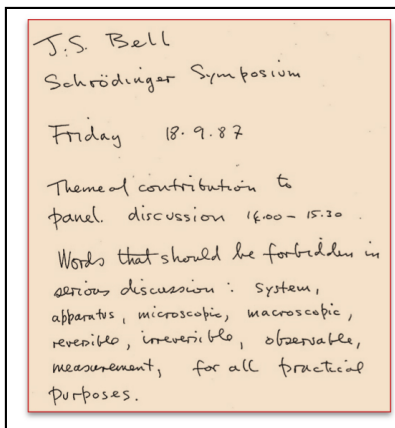 J.S. Bell
Schrödinger Symposium
Friday 18.9.87
Theme of contribution to
panel discussion 14.00 - 15.30.
Words that should be forbidden in
serious discussion : system,
apparatus, microscopic, macroscopic,
reversible, irreversible, observable,
measurement, for all practical
purposes.